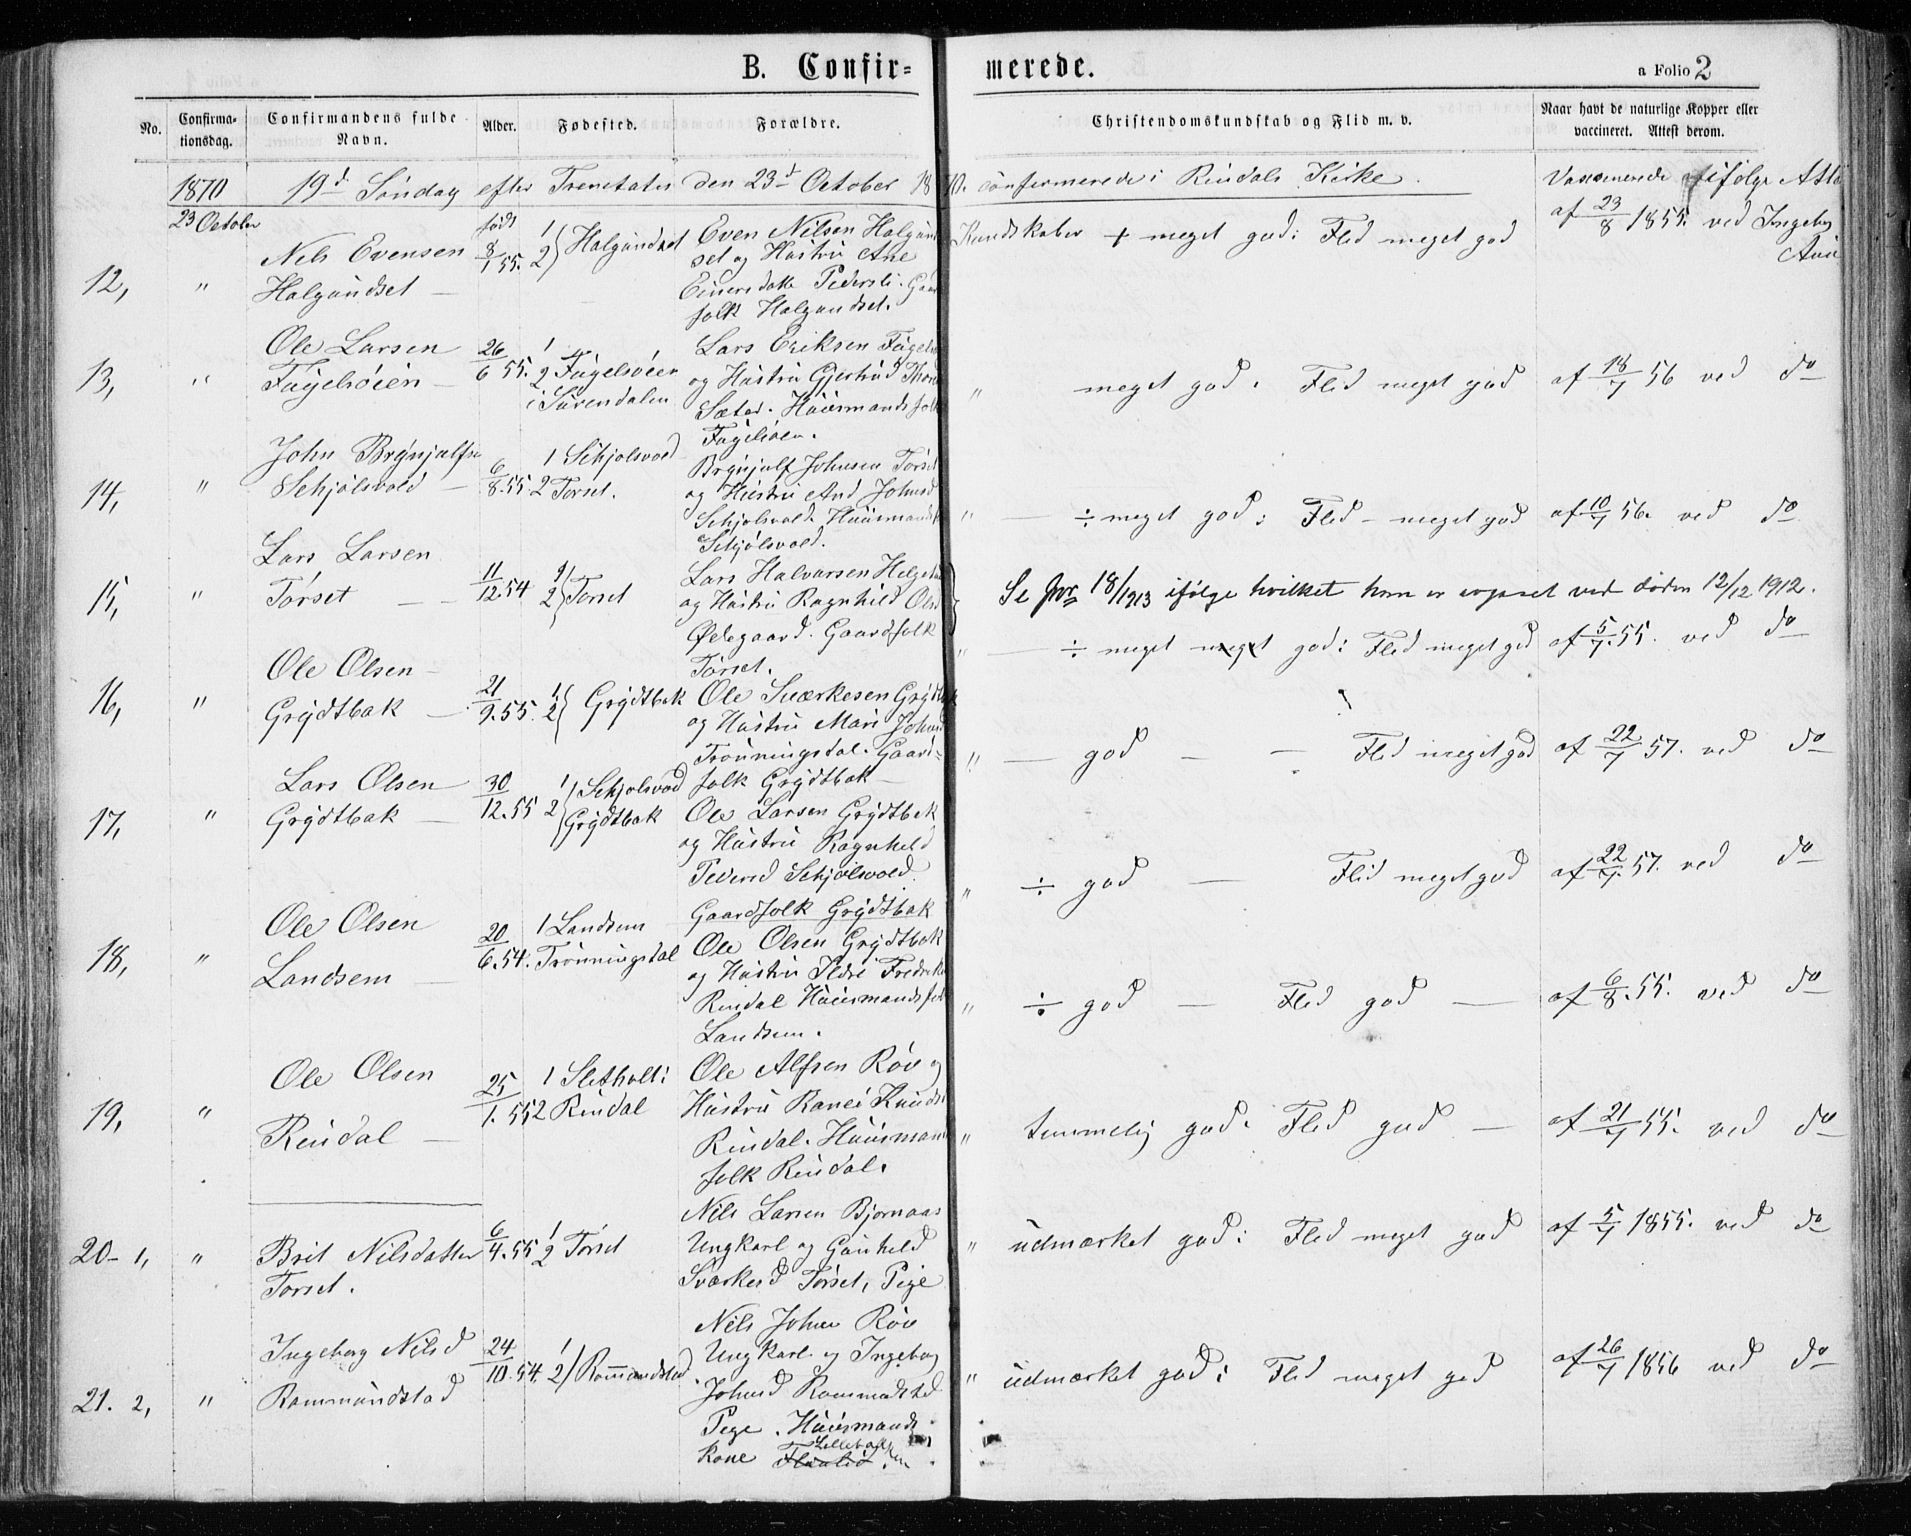 B. Confir-
merede.
a Folio 2
No.
Confirma-
tionsdag.
Confirmandens fulde
Navn.
Alder.
Fødested.
Forældre.
Christendomskundskab og Flid m. v.
Naar havt de naturlige Kopper eller
vaccineret. Attest derom.
1870 19d Søndag efter Trenetates den 23d October 1870. confirmerede i Rindals Kirke.
23 October
12, " Nels Evensen
Halgundset —
født
8/1 55. 1 2 } Halgundset
Even Nilsen Halgund
set og Hustru Ane
Einersdatte Pedersli. Gaard
folk Halgundset.
Kundskaber + meget god: Flid meget god
Vaccinerede ifølge Atte
af 23/8 1855. ved Ingebrg
13, " Ole Larsen
Fugelsøien —
26/6 55. 1
2 Fugelsøien
i Surendalen
Lars Eriksen Fugels
og Hustru Gjertrud
Sæter. Huusmandsfolk
Fugelsøen.
" meget god. Flid meget god
af 18/7 56 ved do
14, " John Brynjulfsn
Schjølsvold —
6/8.55 1 Schjolsvold
2 Torset.
Brynjulf Johnsen Torset
og Hustru And Johnsd
Schjolsvold. Huusmands
Schjølsvold.
" — ÷ meget god: Flid — meget god
af 10/7 56. ved do
15, " Lars Larsen
Tørset — —
11/12.54 1 2 } Torset
Lars Halvorsen
og Hustru Ragnhild Olsd
Ødegaard. Gaardfolk
Tørset.
Se jnr 18/1913 ifølge hvilket han er avgaaet ved døden 12/12 1912.
" — ÷ meget meget god: Flid meget god
af 5/7.55. ved do
16, " Ole Olsen —
Grydtbak —
21/9.55. 1 2 { Grydtbak
Ole Sværkesen Grydtbak
og Hustru Mari Johnsd
Trønningsdal. Gaard-
folk Grydtbak —
" — god — — Flid meget god
af 22/7 57. ved do
17, " Lars Olsen
Grydtbak —
30/12.55 1 Schjolsvod
2 Grydtbak
Ole Larsen Grydtbak
og Hustru Ragnheld
Pedersd Schjølsvold.
Gaardfolk Grydtbak
" ÷ god — Flid meget god
af 22/7.57. ved do
18, " Ole Olsen
Landsem —
20/6.54. 1 Landsem
Trønningsdal
Ole Olsen Grydtbak
og Hustru Ildri Fredrik
Rindal Huusmandsfolk
Landsem.
" ÷ god — Flid god —
af 6/8.55. ved do
19, " Ole Olsen
Rindal —
25/1.55 1 Sletholt i
2 Rindal
Ole Alfsen Røv og
Hustru Ranei Knuds
Rindal. Huusmand
folk Rindal.
" temmelig god. Flid god —
af 21/7 55. ved do
20- 1, " Brit Nilsdatter
Torset.
6/4.55 1
2 Torset
Nils Larsen Bjornaas
Ungkarl og Gunheld
Sværkesd Tørset, Pige
" udmærket god: Flid meget god
af 5/7 1855. ved do
21. 2, " Ingeborg Nilsd
Rommundstad
24/10.54. 1 2 } Romandstad
Nils Johns Røv
Ungkarl og Ingeborg
Johnsd Rommudsted
Pige. Huusmands
Kone
" udmærket god: Flid meget god
af 26/7 1856 ved do